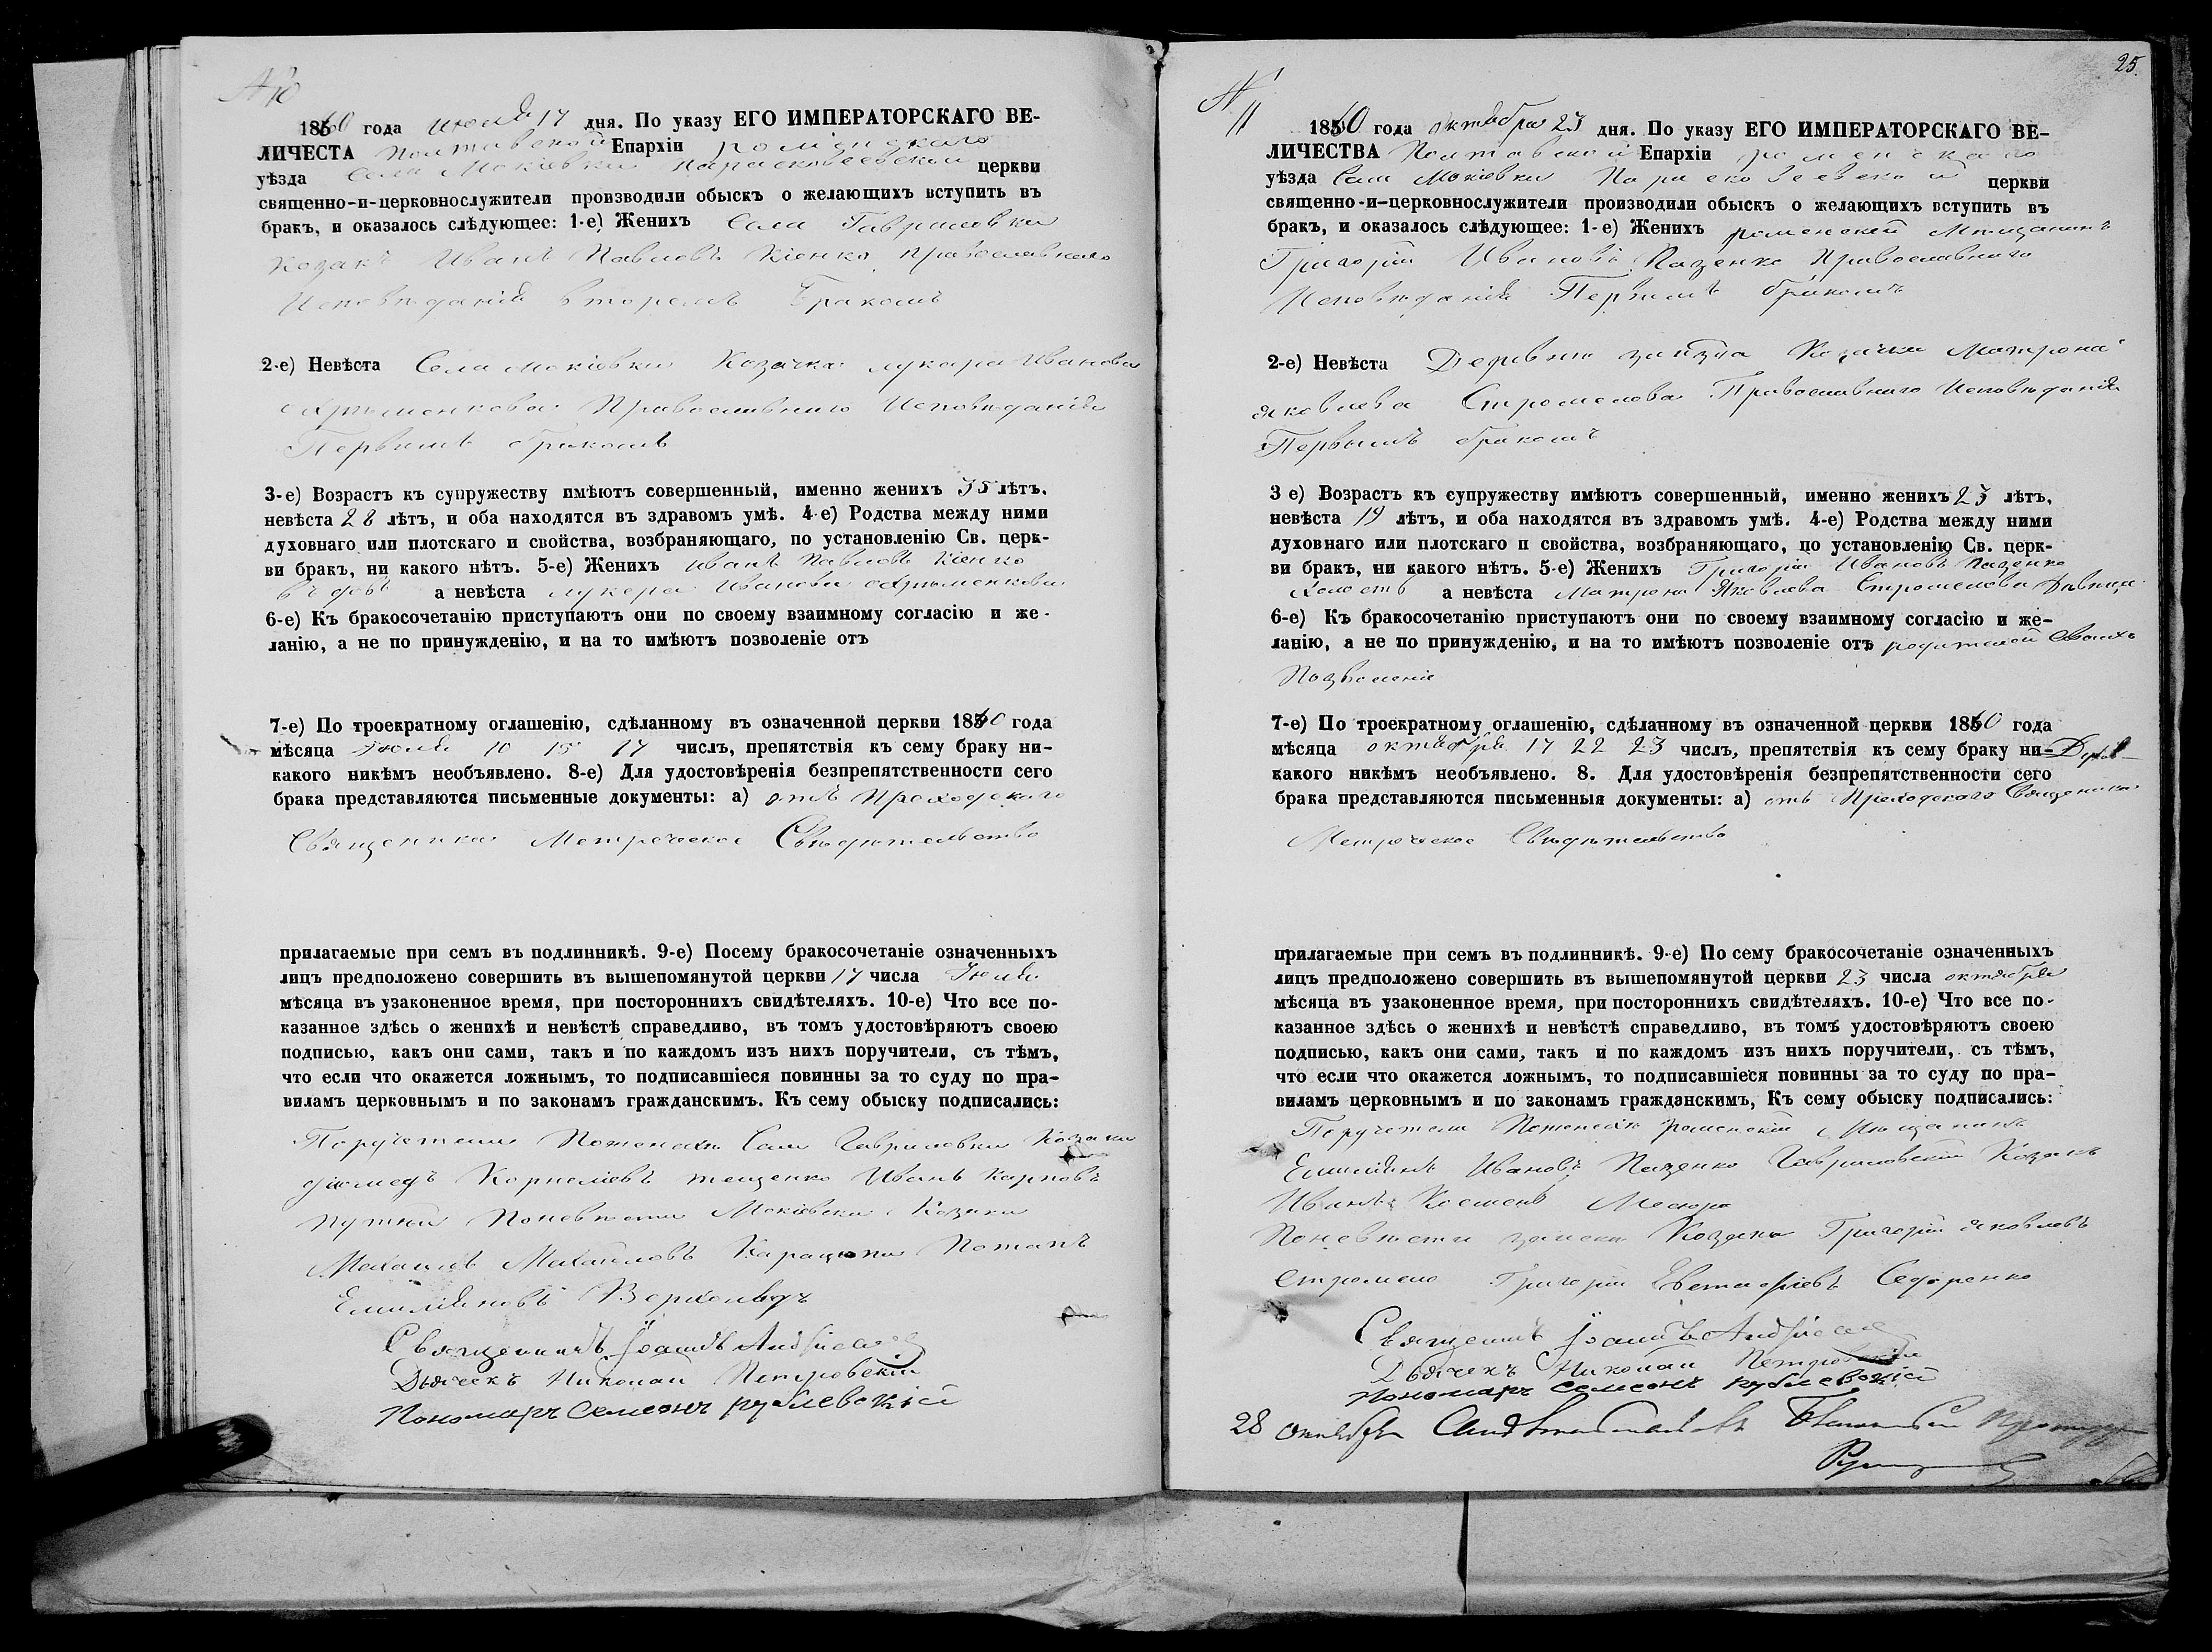 № 10
1860 года Июля 17 дня. По указу ЕГО ИМПЕРАТОРСКАГО ВЕ-
ЛИЧЕСТА Полтавской Епархіи роменскаго
уѣзда Села Мокіевки Параскевеевской церкви
священно-и-церковнослужители производили обыскъ о желающихъ вступить въ
бракъ, и оказалось слѣдующее: 1-е) Женихъ Села Гавриловки
Козакъ Иванъ Павловъ Кіенко Православнаго
Исповѣданія вторымъ бракомъ
2-е) Невѣста Села Мокіевки Козачка лукера Иванова
Православнаго Исповѣданія
Первымъ бракомъ
3-е) Возрастъ къ супружеству имѣютъ совершенный, именно женихъ 35 лѣтъ.
невѣста 28 лѣтъ, и оба находятся въ здравомъ умѣ. 4-е) Родства между ними
духовнаго или плотскаго и свойства, возбраняющаго, по установленію Св. церк-
ви бракъ, ни какого нѣтъ. 5-е) Женихъ Иванъ Павловъ Кіенко
вдовъ а невѣста лукера Иванова
6-е) Къ бракосочетанію приступаютъ они по своему взаимному согласію и же-
ланію, а не по принужденію, и на то имѣютъ позволеніе отъ
7-е) По троекратному оглашенію, сдѣланному въ означенной церкви 1860 года
мѣсяца Июля 10 15 17 числъ, препятствія къ сему браку ни-
какого никѣмъ необъявлено. 8-е) Для удостовѣренія безпрепятственности сего
брака представляются письменные документы: а) отъ Приходскаго
Священика Метрическое Свидѣтельство
прилагаемые при семъ въ подлинникѣ. 9-е) Посему бракосочетаніе означенныхъ
лицъ предположено совершить въ вышепомянутой церкви 17 числа Июля
мѣсяца въ узаконенное время, при постороннихъ свидѣтеляхъ. 10-е) Что все по-
казанное здѣсь о женихѣ и невѣстѣ справедливо, въ томъ удостовѣряютъ своею
подписью, какъ они сами, такъ и по каждомъ изъ нихъ поручители, съ тѣмъ,
что если что окажется ложнымъ, то подписавшіеся повинны за то суду по пра-
виламъ церковнымъ и по законамъ гражданскимъ. Къ сему обыску подписались:
Поручетели Поженихи Села Гавриловки Козаки
Корнеліевъ тещенко Иванъ Карповъ
Поневѣсти Мокіевски Козаки
Михаилъ Михаиловъ Карацюпа Потапъ
Емиліяновъ
Священникъ Іоаннъ Андріевъ
Дьячекъ Николай Петровскій
Пономарь Семеонъ рублевскій
25.
№ 11
1860 года октября 23 дня. По указу ЕГО ИМПЕРАТОРСКАГО ВЕ-
ЛИЧЕСТВА Полтавской Епархіи роменскаго
уѣзда Села Мокіевки Параскевеевской церкви
священно-и-церковнослужители производили обыскъ о желающихъ вступить въ
бракъ, и оказалось слѣдующее: 1-е) Женихъ роменскій Мещанинъ
Григорій Ивановъ Пащенко Православнаго
Исповѣданія Первымъ бракомъ
2-е) Невѣста Деревни Козачка Матрона
яковлева Стромелова Православнаго Исповѣданія
Первымъ бракомъ
3 е) Возрастъ къ супружеству имѣютъ совершенный, именно женихъ 23 лѣтъ,
невѣста 19 лѣтъ, и оба находятся въ здравомъ умѣ. 4-е) Родства между ними
духовнаго или плотскаго и свойства, возбраняющаго, по установленію Св. церк-
ви бракъ, ни какого нѣтъ. 5-е) Женихъ Григорій Ивановъ Пащенко
Холостъ а невѣста Матрона Яковлева Стромелова Дѣвица
6-е) Къ бракосочетанію приступаютъ они по своему взаимному согласію и же-
ланію, а не по принужденію, и на то имѣютъ позволеніе отъ родителей своихъ
Позволеніе
7-е) По троекратному оглашенію, сдѣланному въ означенной церкви 1860 года
мѣсяца октября 17 22 23 числъ, препятствія къ сему браку ни-
какого никѣмъ необъявлено. 8. Для удостовѣренія безпрепятственности сего
брака представляются письменныя документы: а) отъ Приходскаго Священика
Метрическое Свидѣтельство
прилагаемые при семъ въ подлинникѣ. 9-е) По сему бракосочетаніе означенныхъ
лицъ предположено совершить въ вышепомянутой церкви 23 числа октября
мѣсяца въ узаконенное время, при постороннихъ свидѣтеляхъ. 10-е) Что все по-
казанное здѣсь о женихѣ и невѣстѣ справедливо, въ томъ удостовѣряютъ своею
подписью, какъ они сами, такъ и по каждомъ изъ нихъ поручители, съ тѣмъ,
что если что окажется ложнымъ, то подписавшіеся повинны за то суду по пра-
виламъ церковнымъ и по законамъ гражданскимъ, Къ сему обыску подписались:
Поручетели Поженихи роменскій Мещанинъ
Емиліянъ Ивановъ Пащенко Гавриловскій Козакъ
Иванъ
Поневѣсти Козаки Григорій яковлевъ
Стромело Григорій Евстафіевъ Седоренко
Священникъ Іоаннъ Андріевъ
Дьячекъ Николай Петровскій
Пономарь Семеонъ рублевскій
28 октября